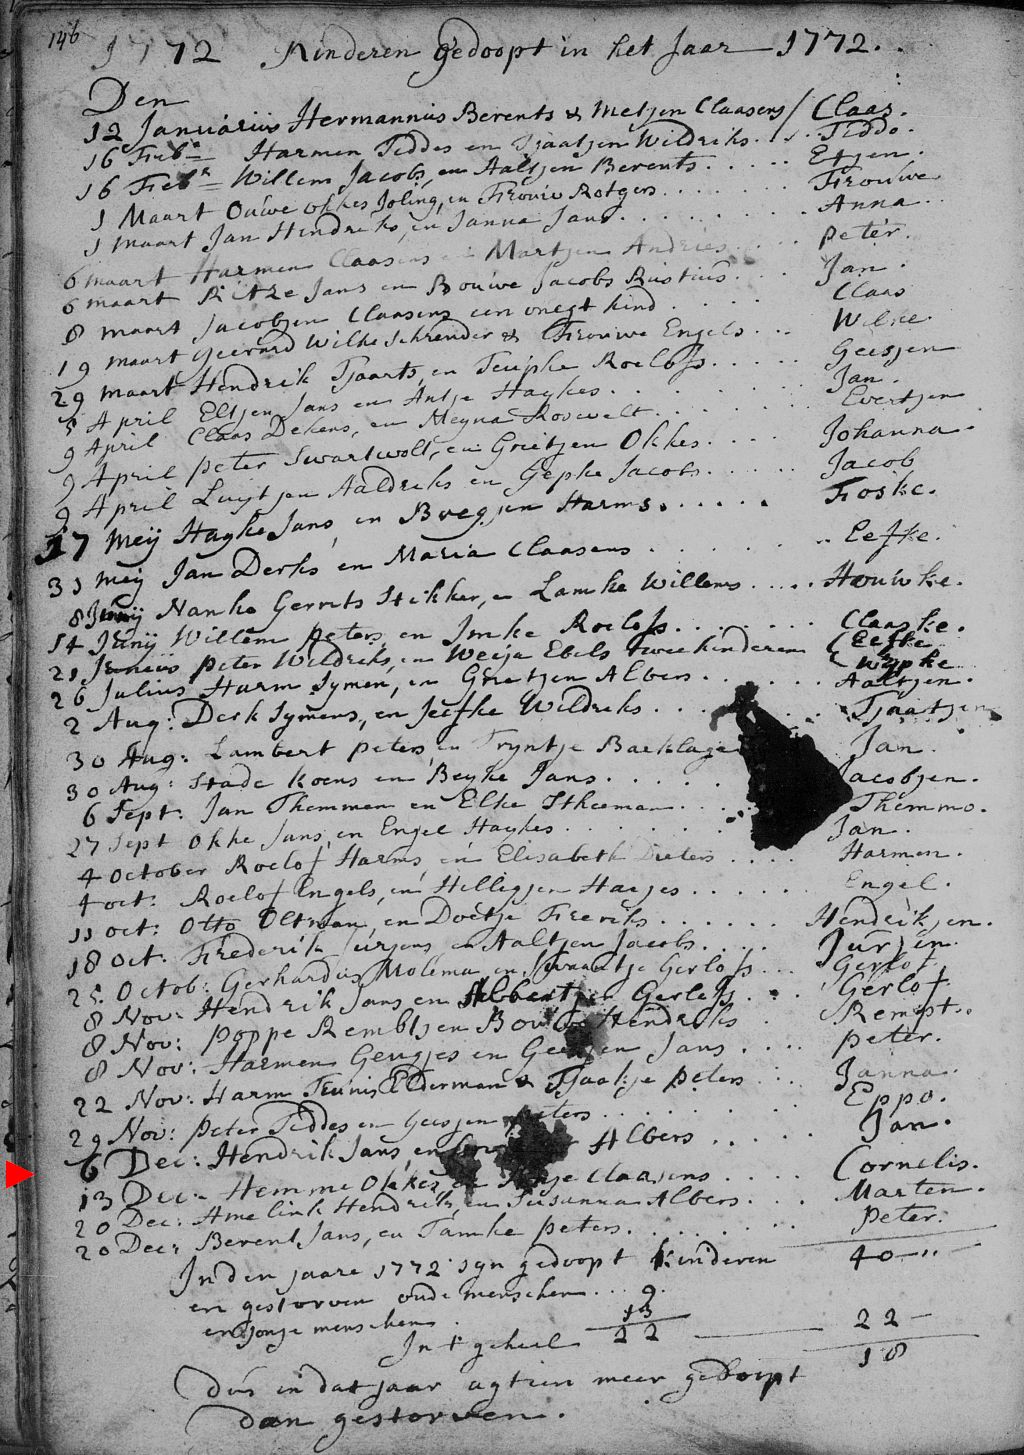 146
1772 Kinderen gedoopt in het Jaar 1772.
Den
12 Januariüs Hermannüs Berents & Metjen Claasens / Claas.
16 Feb: Harmen Teddes en Tjaatjen Wildriks . . . Teddo.
16 Febr Willem Jacobs, en Aaltjen Berents . . . . . Etjen.
1 Maart Oüwe okkes Joling, en Froüw Rotgers . . . . . Froüwe
1 maart Jan Hendriks, en Janna Jans . . . . . . . Anna . .
6 maart Harmen Claasens en Martjen Andries . . . . peter.
6 maart Ritze Jans en Boüwe Jacobs Rüstiüs . . . Jan .
8 maart Jacobjen Claasens een onegt kind . . . . . Claas
19 maart Geerard Wilke Schreüder & Froüwe Engels . . . Wilke.
29 maart Hendrik Tjaarts, en Teüpke Roelofs . . . . . Geesjen
5 April Eltjen Jans en Antje Haykes . . . . . . Jan.
9 April Claas Dekens, en Meyna Rosevelt . . . . . . Evertjen
9 April peter Swartwolt, en Grietjen Okkes . . . . Johanna.
9 April Luytjen Aaldriks en Gepke Jacobs . . . . . . Jacob
17 Meij Hayke Jans, en Bregjen Harms . . . . . . Foske.
31 Meij Jan Derks en Maria Claasens . . . . . . Eefke.
8 Junij Nanko Gerrits Stikker, en Lamke Willems . . . . Hoüwke.
14 Junij Willem peters, en Imke Roelofs . . . . . . Claaske.
21 Juniüs peter Wildriks, en Weija Ebels twee kinderen { Eefke
{ Wypke
26 Juliüs Harm Symen, en Grietjen Albers . . . . . Aaltjen.
2 Aug: Derk Symens, en Jeefke Wildriks . . . Tjaatjen
30 Aug: Lambert peters, en Tryntje Baeklage Jan .
30 Aug: Stade Koens en Beyke Jans . . . . . Jacobjen.
6 Sept: Jan Themmen en Elke Stheeman . . . . Themmo.
27 Sept Okke Jans, en Engel Haykes . . . . . . Jan .
4 October Roelof Harms, en Elisabeth Pieters . . . . Harmen.
4 oct: Roelof Engels, en Hilligjen Harjes . . . . . Engel.
11 oct: Otto Oltman, en Doetje Freriks . . . . . . Hendrikjen.
18 Oct. Frederik Jürjens en Aaltjen Jacobs . . . . Jürjen.
25 Octob: Gerhardüs Molema en Swaantje Gerlofs . . . Gerlof
8 Nov: Hendrik Jans en Albertjen Gerlofs . . . Gerlof.
8 Nov: poppe Rembt jen Boüwe Hendriks . Rempt . .
8 Nov: Harmen Geugjes en Geesjen Jans . . . . peter.
22 Nov: Harm Teünis Elderman & Tjaatje peters . . . Janna.
29 Nov: peter Teddes en Geesjen peters . . . . . . . Eppo.
6 Dec: Hendrik Jans, en Albers . . . . . . Jan.
13 Dec: Hemme Okkes en Claasens . . . . . Cornelis.
20 Dec: Amelink Hendriks, en Susanna Albers . . . . Marten.
20 Decr Berent Jans, en Tamke peters . . . . . peter.
In den jaare 1772 syn gedoopt kinderen 40
en gestorven oude menschen . . . 9.
en jonge menschen . 13
In 't geheel 22 22
18
Dus in dat jaar agtien meer gedoopt
dan gestorven.